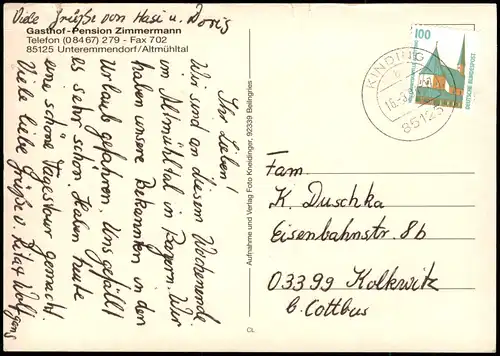 Viele Grüße von Hasi u. Doris
Gasthof-Pension Zimmermann
Telefon (08467) 279 - Fax 702
85125 Unteremmendorf/Altmühltal
Ihr Lieben!
Wir sind an diesem Wochenende
im Altmühltal in Bayern. Wir
haben unsere Bekannten in den
Urlaub gefahren. Uns gefällt
es sehr schön. Haben heute
eine schöne Tagestour gemacht.
Viele liebe Grüße v. Rita + Wolfgang
Aufnahme und Verlag Foto Kneidinger, 92339 Beilngries
CL
100
DEUTSCHE BUNDESPOST
KINDING
b
85125
Fam.
K. Duschka
Eisenbahnstr. 8b
03399 Kolkwitz
b. Cottbus